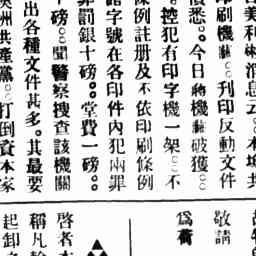 美利㮈消息云。本埠共
印刷機器。刊印反動文件
悉。。今日將機器破獲。。
控犯有印字機一架。。不
條例註册及不依印刷條例
字號在各印件內犯兩罪
罪罰銀十磅。。堂費一磅。。
十磅。。聞警察搜查該機關
出各種文件甚多。。其最要
洲共產黨。。打倒資本家
敬請
爲荷
啓者本
稱凡
起卸之